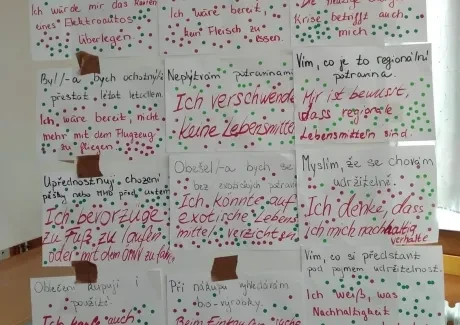 Ich würde mir das Kaufen
eines Elektroautos
überlegen.
Ich wäre bereit,
kein Fleisch zu
essen.
Krise betrifft auch
mich
Byl/-a bych ochotný/-á
přestat létat letadlem.
Ich wäre bereit, nicht
mehr mit dem Flugzeug
zu fliegen.
Neplýtvám potravinami.
Ich verschwende
keine Lebensmittel
Vím, co je to regionální
potravina.
Mir ist bewusst,
was regionale
Lebensmitteln sind.
Upřednostňuji chození
pěšky nebo MHD před autem
Ich bevorzuge
zu Fuß zu laufen
oder mit dem ÖNV zu fahren
Obešel/-a bych se
bez exotických potravin
Ich könnte auf
exotische Lebens
mittel verzichten
Myslím, že se chovám
udržitelně.
Ich denke, dass
ich mich nachhaltig
verhalte
Oblečení kupuji i
použité.
auch
Při nákupu vyhledávám
bio-výrobky.
Beim Einkaufen suche
Vím, co si představit
pod pojmem udržitelnost.
Ich weiß, was
Nachhaltigkeit